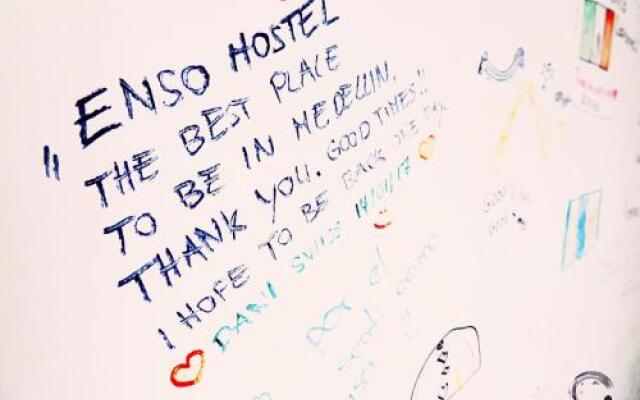 "ENSO HOSTEL
THE BEST PLACE
TO BE IN MEDELLIN.
THANK YOU. GOOD TIMES!!
I HOPE TO BE BACK ONE DAY
DANI 14/01/17
por el
como